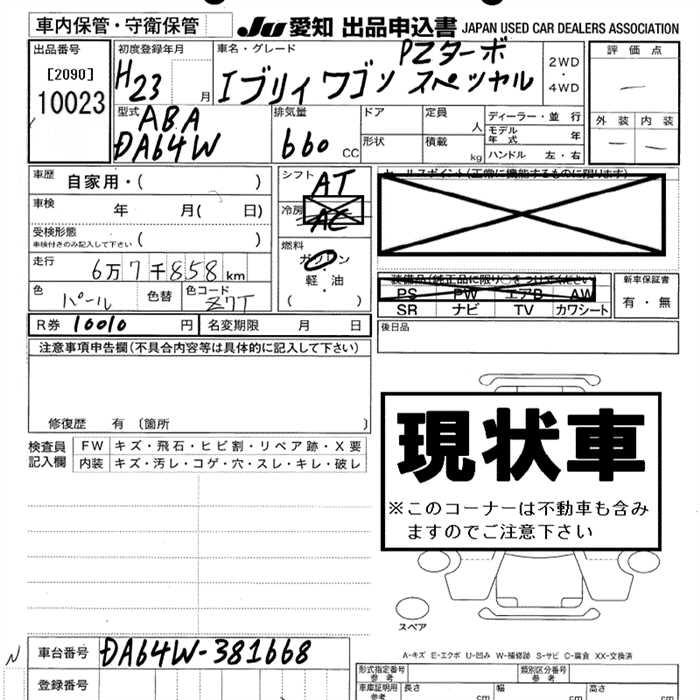 車内保管・守衛保管
JU 愛知 出品申込書 JAPAN USED CAR DEALERS ASSOCIATION
出品番号
[2090]
10023
初度登録年月
H23 月
車名・グレード
PZターボ
エブリィ ワゴン スペシャル
2WD
・
4WD
評価点
外装 内装
型式
ABA
DA64W
排気量
660 CC
ドア
定員
人
形状
積載
kg
ディーラー・並行
モデル
年式 年
ハンドル 左・右
車歴
自家用・( )
車検
年 月( 日)
受検形態
車検付きのみ記入して下さい ( )
走行
6万7千858km
色
パール
色替
色コード
Z7T
シフト
AT
冷房
AC
燃料
ガソリン
・
軽油
・
( )
セールスポイント(正常に機能するものに限ります)
装備品(純正品に限り○をつけてください)
PS PW エアB AW
SR ナビ TV カワシート
新車保証書
有・無
R券 10010 円 名変期限 月 日
後日品
注意事項申告欄(不具合内容等は具体的に記入して下さい)
修復歴 有 (箇所 )
検査員
記入欄
FW キズ・飛石・ヒビ割・リペア跡・X要
内装 キズ・汚レ・コゲ・穴・スレ・キレ・破レ
現状車
※このコーナーは不動車も含み
ますのでご注意下さい
スペア
A-キズ E-エクボ U-凹み W-補修跡 S-サビ C-腐食 XX-交換済
N
車台番号 DA64W-381668
登録番号
型式指定番号
参考
類別区分番号
参考
車庫証明用
参考
長さ cm 幅 cm 高さ cm